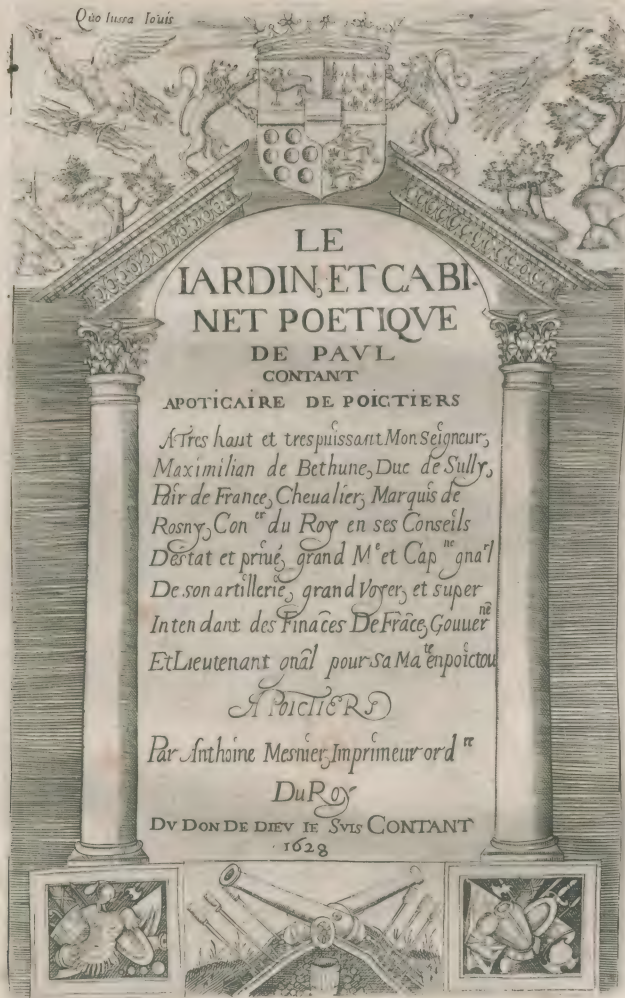 Quo Iussa Iouis
LE
IARDIN, ET CABI-
NET POETIQVE
DE PAVL
CONTANT
APOTICAIRE DE POICTIERS
A Tres haut et trespuissant Monseigneur,
Maximilian de Bethune, Duc de Sully,
Pair de France, Cheualier, Marquis de
Rosny, Con.er du Roy en ses Conseils
D'éstat et priué, grand Me et Cap ne gnāl
De son artillerie, grand Voyer, et super
Inten dant des Fināces De Frāce, Gouuer ne
Et Lieutenant gnāl pour sa Ma te en poictou
A POICTIERS
Par Anthoine Mesnier, Imprimeur ord re
Du Roy
DV DON DE DIEV IE SVIS CONTANT
1628